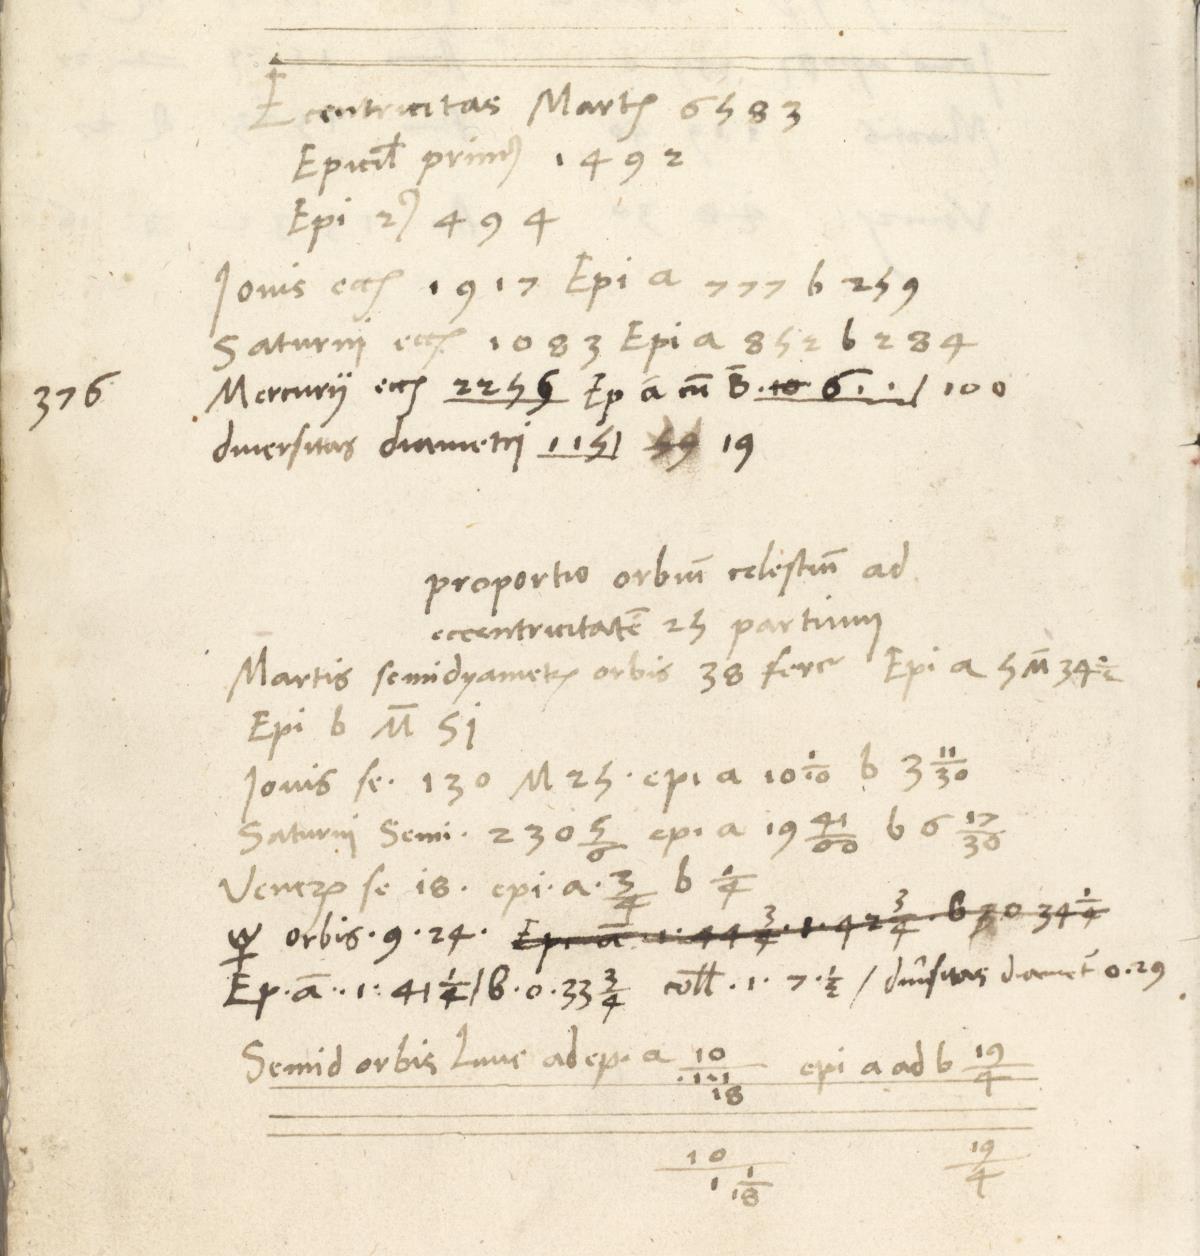 Ecentricitas Martꝭ 6583
Epicicl primꝰ 1492
Epi 2ꝰ 494
Jovis ecctꝭ 1917 Epi a 777 b 259
Saturni ecctꝭ 1083 Epi a 852 b 284
376 Mercurij ecctꝭ 2256 Ep ā cū B̄ · 10 6 · 1 · / 100
diversitas diametri 115 59 19
proportio orbiū celestiū ad
eccentricitatē 25 partium
Martis semidyametꝝ orbis 38 fere Epi a 5 M̄ 34 1/2
Epi b M̄ 51
Jovis se. 130 M 25. epi a 10 1/10 b 3 11/30
Saturni Semi. 230 5/6 epi a 19 41/60 b 6 17/30
Veneꝝ se 18. epi. a. 3/4 b 1/4
☿ orbis. 9. 24. Epi ā 1. 44 3/4. 1. 42 3/4. b 0 34 1/4
Ep. ā. 1. 41 1/4 / b. 0. 33 3/4 coll. 1. 7. 1/2 / dīvsitas diamet̄ 0. 29
Semid orbis Lune ad ep. a 10/1 1/18 epi a ad b 19/4
10/1 1/18 19/4